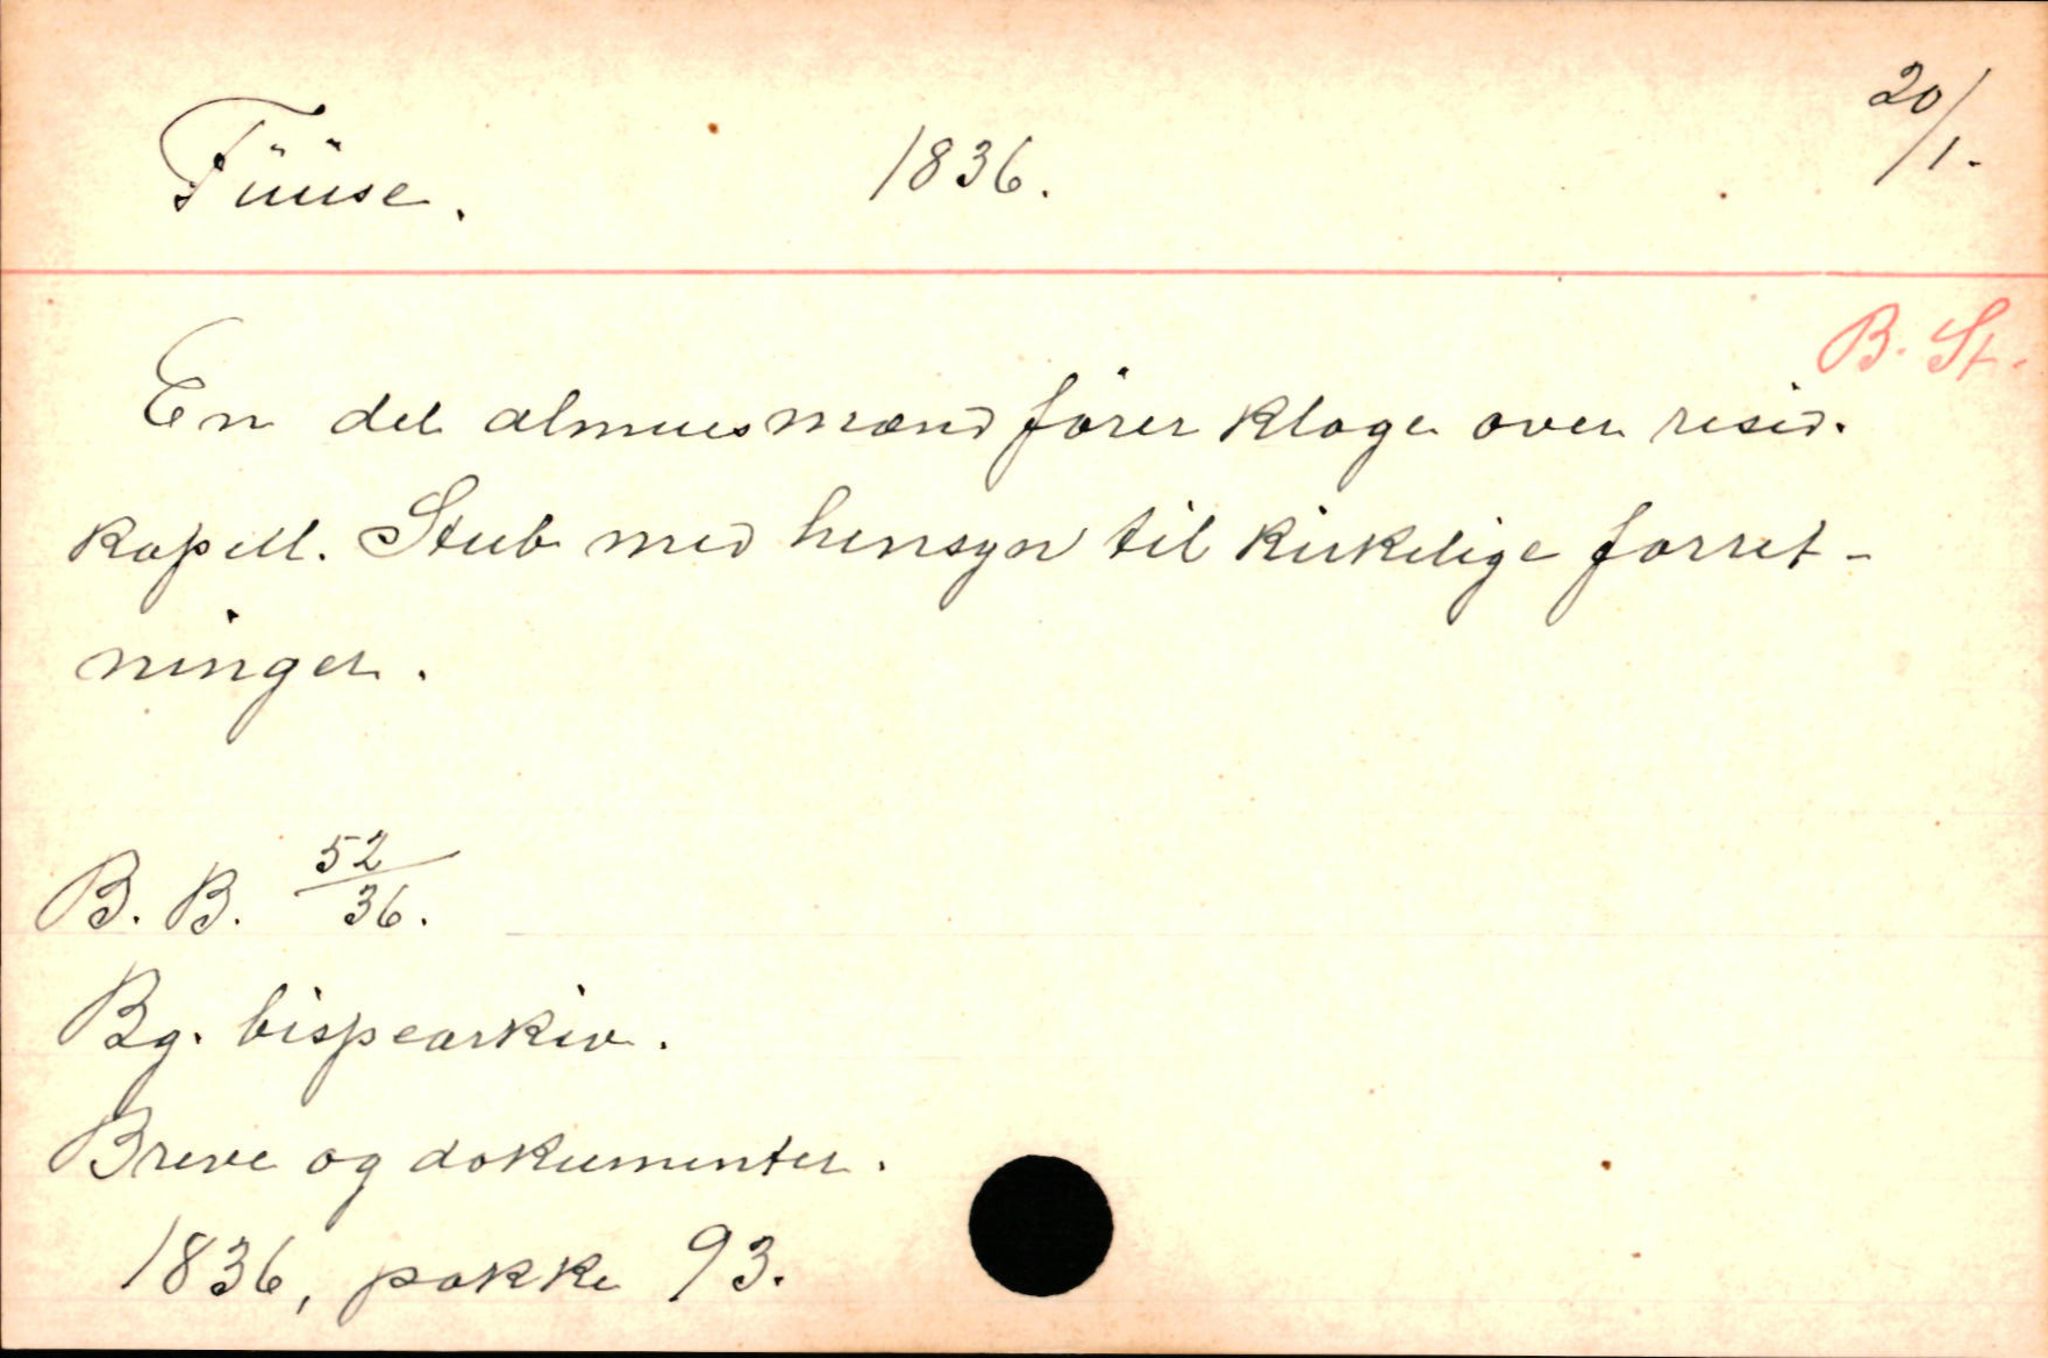 Füüse. 1836. 20/1.
B. St.
En del almuesmænd fører klage over resid.
kapell. Stub med hensyn til kirkelige forret-
ninger.
B. B. 52/36.
Bg. bispearkiv.
Breve og dokumenter.
1836, pakke 93.